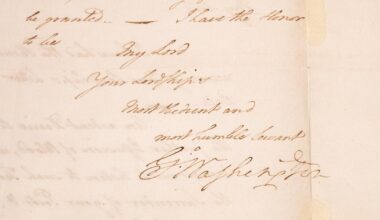 be granted — I have the Honor
to be
My Lord
Your Lordships
Most Obedient and
most humble Servant
Go: Washington